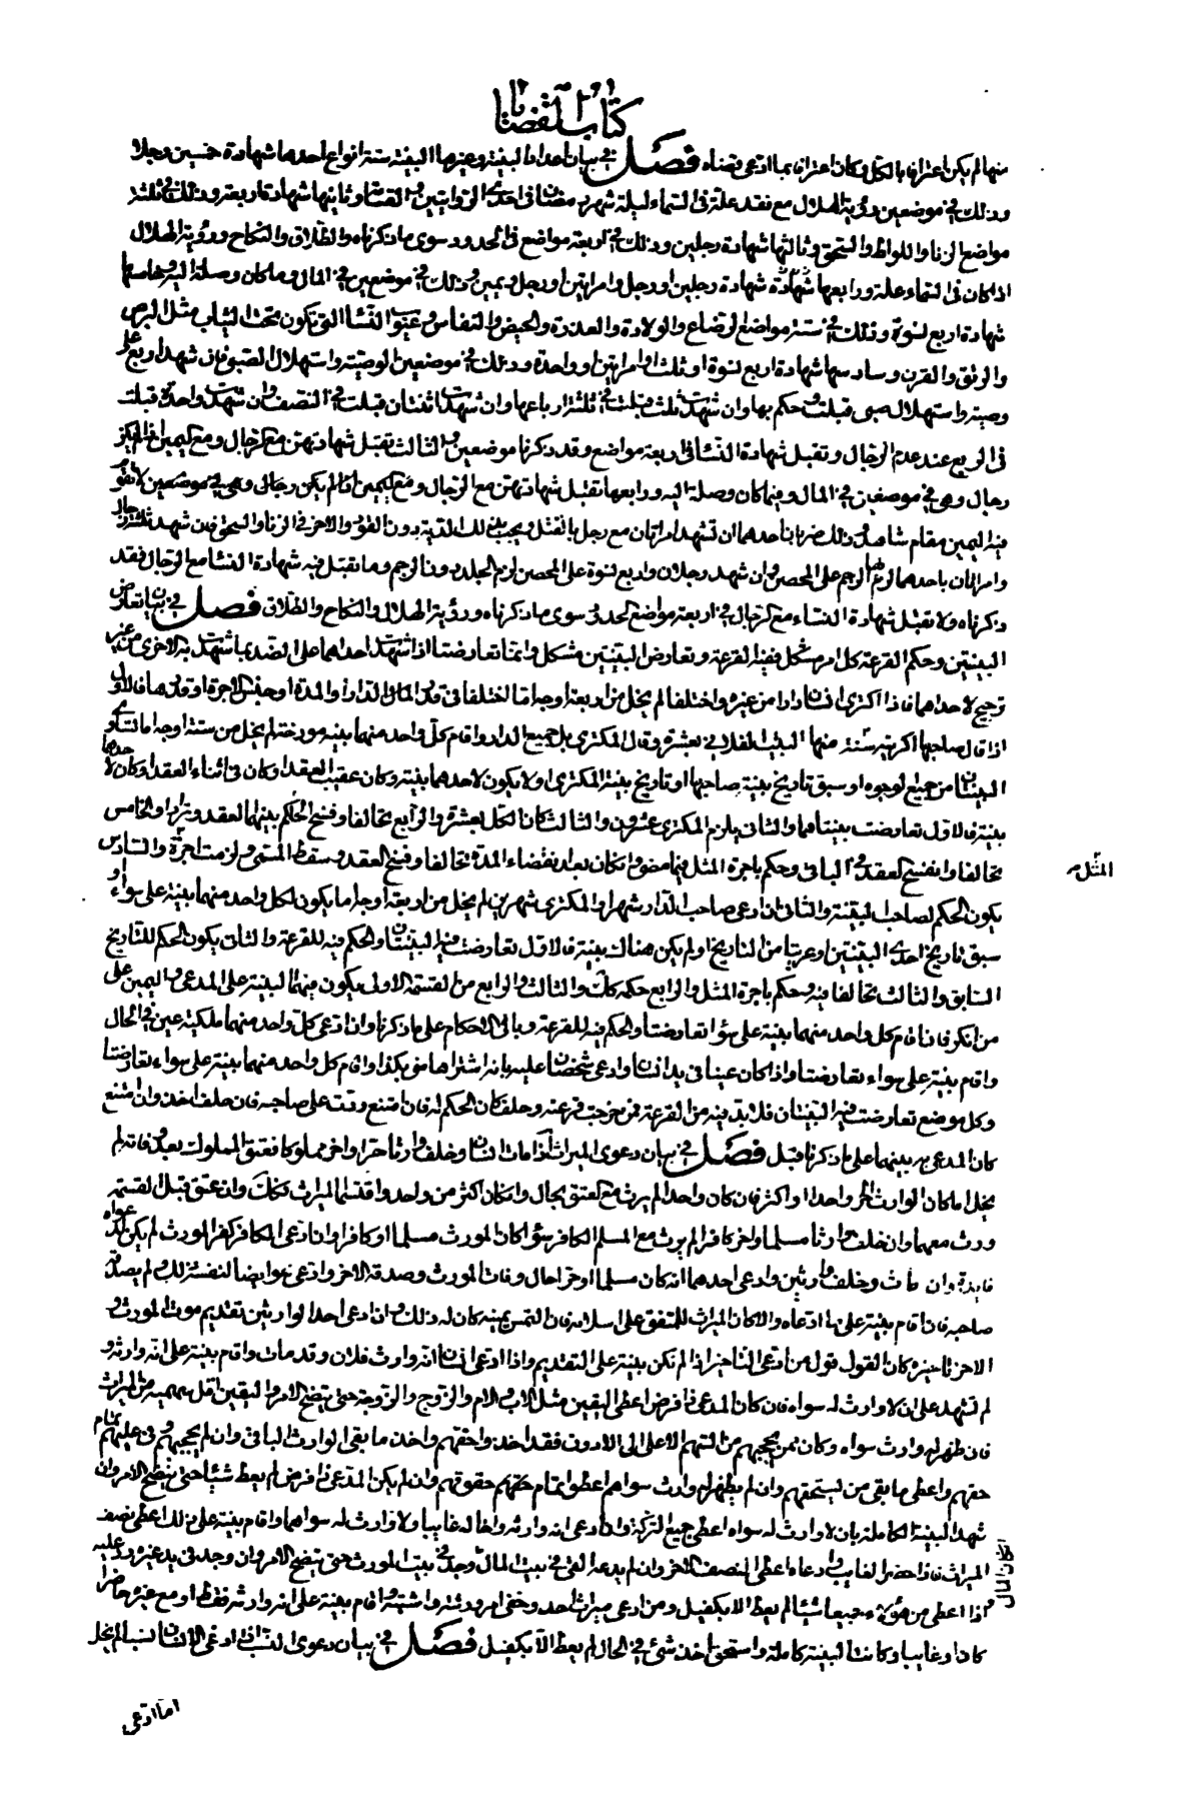 كتاب القضايا
منها لم يكن اعترافا بالكل وكان اعترافا بما ادعى قضاه فصل في بيان اعداد البينة وغيرها البينة ستة انواع احدها شهادة خمسين رجلا
وذلك في موضعين رؤية الهلال مع فقد علة في السماء ليلة شهر رمضان في احدى الروايتين والقسامة وثانيها شهادة اربعة وذلك في ثلثة
مواضع الزنا واللواط والسحق وثالثها شهادة رجلين وذلك في اربعة مواضع في الحدود سوى ما ذكرناه والطلاق والنكاح ورؤية الهلال
اذا كان في السماء علة ورابعها شهادة رجلين او رجل وامراتين او رجل ويمين وذلك في موضعين في المال وما كان وصلة اليه وخامسها
شهادة اربع نسوة وذلك في ستة مواضع الرضاع والولادة والعذرة والحيض والنفاس وعيوب النساء التي تكون تحت الثياب مثل البرص
والرتق والقرن وسادسها شهادة اربع نسوة او ثلث او امراتين او واحدة وذلك في موضعين الوصية واستهلال الصبي فان شهد اربع على
وصية واستهلال صبي قبلت وحكم بها وان شهدت ثلث قبلت في ثلثة ارباعها وان شهدت اثنتان قبلت في النصف وان شهدت واحدة قبلت
في الربع عند عدم الرجال وتقبل شهادة النساء في اربعة مواضع وقد ذكرنا موضعين والثالث تقبل شهادتهن مع الرجال ومع اليمين اذا لم يكن
رجال وهو في موضعين في المال وفيما كان وصلة اليه ورابعها تقبل شهادتهن مع الرجال ومع اليمين اذا لم يكن رجال وهي في موضعين لا تقوم
فيه اليمين مقام شاهد وذلك ضربان احدهما ان تشهد امراتان مع رجل بالقتل ويجب بذلك الدية دون القود والاخر في الزنا والسحق فان شهد ثلثة رجال
وامراتان باحدهما لزم الرجم على المحصن وان شهد رجلان واربع نسوة على المحصن لزم الجلد دون الرجم وما تقبل فيه شهادة النساء مع الرجال فقد
ذكرناه ولا تقبل شهادة النساء مع الرجال في اربعة مواضع الحدود سوى ما ذكرناه ورؤية الهلال والنكاح والطلاق فصل في بيان تعارض
البينتين وحكم القرعة كل امر مشكل ففيه القرعة وتعارض البينتين مشكل وانما تعارضتا اذا شهدت احداهما على الضد بما شهدت به الاخرى من غير
ترجيح لاحداهما فاذا اكترى انسان دارا من غيره واختلفا لم يخل من اربعة اوجه اما اختلفا في قدر المال او الدار او المدة او جنس الاجرة او قدرها فالاول
اذا قال صاحبها اكريته سنة منها البيت الفلاني بعشرة وقال المكتري بل جميع الدار واقام كل واحد منهما بينة مورخة لم يخل من ستة اوجه اما تساوي
البينتان من جميع الوجوه او سبق تاريخ بينة صاحبها او تاريخ بينة المكتري او لا يكون لاحدهما بينة وكان عقيب العقد او كان في اثناء العقد او كان لاحدهما
بينة فالاول تعارضت بينتاهما والثاني يلزم المكتري عشرون والثالث كان الكل بعشرة والرابع تحالفا وفسخ الحاكم بينهما العقد وترادا والخامس
تحالفا وانفسخ العقد في الباقي وحكم باجرة المثل فيما مضى وان كان بعد انقضاء المدة تحالفا وفسخ العقد وسقط المسمى ولزمت اجرة والسادس
المثل
يكون الحكم لصاحب البينة والثاني ان ادعى صاحب الدار شهرا والمكتري شهرين لم يخل من اربعة اوجه اما يكون لكل واحد منهما بينة على سواء او
سبق تاريخ احدى البينتين او عريتا من التاريخ او لم يكن هناك بينة فالاول تعارضت فيه البينتان والحكم فيه للقرعة والثاني يكون الحكم للتاريخ
السابق والثالث تحالفا فيه وحكم باجرة المثل والرابع حكمه كذلك والثالث والرابع من القسمة الاولى يكون فيهما البينة على المدعي واليمين على
من انكر فان اقام كل واحد منهما بينة على سواء تعارضتا والحكم فيه للقرعة وباقي الاحكام على ما ذكرنا وان ادعى كل واحد منهما ملكية عين في الحال
واقام بينة على سواء تعارضتا واذا كان عينا في يد انسان وادعى شخصان عليه بانه اشتراها مني بكذا واقام كل واحد منهما بينة على سواء تعارضتا
وكل موضع تعارضت فيه البينتان فلا بد فيه من القرعة فمن خرجت قرعته وحلف كان الحكم له فان امتنع ردت على صاحبه فان حلف اخذ وان امتنع
كان المدعى به بينهما على ما ذكرنا قبل فصل في بيان دعوى الميراث اذا مات انسان وخلف وارثا حرا واخر مملوكا فعتق المملوك بعد وفاته لم
يخل اما كان الوارث الحر واحدا او اكثر فان كان واحدا لم يرث مع العتق بحال وان كان اكثر من واحد واقتسما الميراث فكذلك وان عتق قبل القسمة
ورث معهما وان خلف وارثا مسلما واخر كافرا لم يرث مع المسلم الكافر سواء كان المورث مسلما او كافرا وان ادعى الكافر كفر المورث لم يكن لدعواه
فايدة وان مات وخلف وارثين وادعى احدهما انه كان مسلما او حرا حال وفات المورث وصدقه الاخر وادعى هو ايضا لنفسه ذلك ولم يصدقه
صاحبه فان اقام بينة على ما ادعاه والا كان الميراث للمتفق على اسلامه فان التمس يمينه كان له ذلك وان ادعى احد الوارثين تقديم موت المورث و
الاخر تاخيره كان القول قول من ادعى التاخير اذا لم تكن بينة على التقديم واذا ادعى انسان انه وارث فلان وقد مات واقام بينة على انه وارثه و
لم تشهد على ان لا وارث له سواه فان كان المدعي ذا فرض اعطي اليقين مثل الاب والام والزوج والزوجة حتى يتضح الامر واليقين اقل سهميه من الميراث
فان ظهر له وارث سواه وكان ممن يحجبهم من السهم الاعلى الى الادون فقد اخذوا حقهم واخذ ما بقي الوارث الباقي وان لم يحجبهم وفى عليهم تمام
حقهم واعطى ما بقي من يستحقهم وان لم يظهر له وارث سواهم اعطوا تمام حقهم حقوقهم وان لم يكن المدعي ذا فرض لم يعط شيئا حتى يتضح الامر وان
شهد البينة الكاملة بان لا وارث له سواه اعطي جميع التركة وان ادعى انه وارثه واخا له غايبا ولا وارث له سواهما واقام بينة على ذلك اعطي نصف
الميراث فاذا حضر الغايب وادعاه اعطي النصف الاخر وان لم يدعه القي في بيت المال وجد في بيت المورث حتى يتضح الامر وان وجد في يد غيره رد عليه
اذا اعطي من هؤلاء جميعا شيئا لم يعط الا بكفيل ومن ادعى ميراث احد وخفي امر ورثته واشتبه واقام بينة على انه وارثه فقط او مع غيره حاضرا
كان او غايبا وكانت البينة كاملة واستحق اخذ شيء في الحال لم يعط الا بكفيل فصل في بيان دعوى النسب اذا ادعى الانسان نسبا لم يخل
اما ادعى